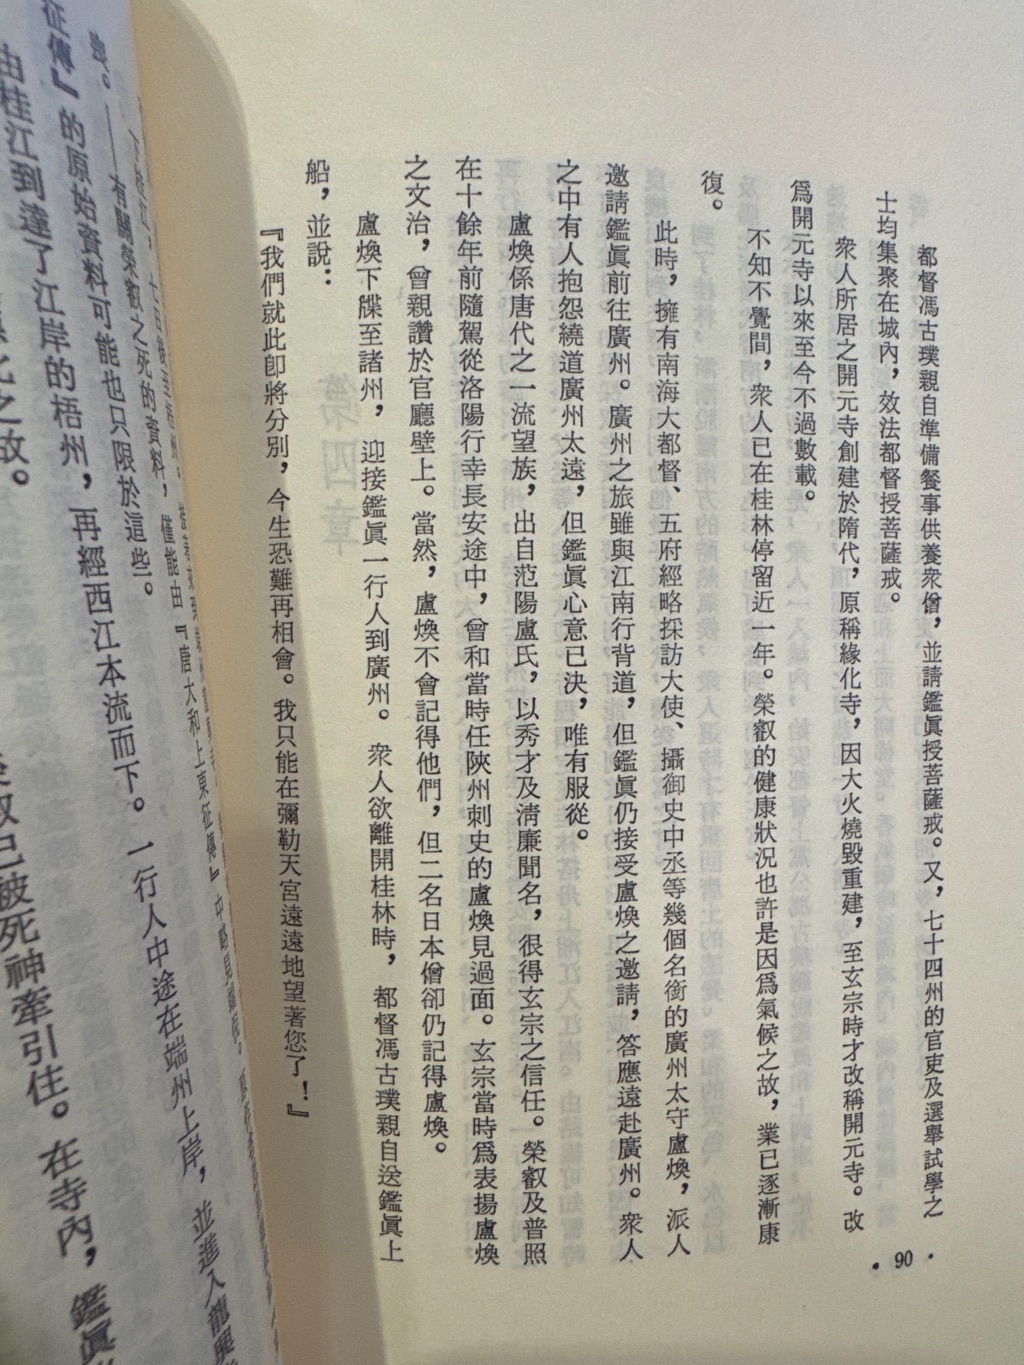 都督馮古璞親自準備餐事供養衆僧，並請鑑眞授菩薩戒。又，七十四州的官吏及選舉試學之
士均集聚在城內，效法都督授菩薩戒。
衆人所居之開元寺創建於隋代，原稱緣化寺，因大火燒毀重建，至玄宗時才改稱開元寺。改
爲開元寺以來至今不過數載。
不知不覺間，衆人已在桂林停留近一年。榮叡的健康狀況也許是因爲氣候之故，業已逐漸康
復。
此時，擁有南海大都督、五府經略採訪大使、攝御史中丞等幾個名銜的廣州太守盧煥，派人
邀請鑑眞前往廣州。廣州之旅雖與江南行背道，但鑑眞仍接受盧煥之邀請，答應遠赴廣州。衆人
之中有人抱怨繞道廣州太遠，但鑑眞心意已決，唯有服從。
盧煥係唐代之一流望族，出自范陽盧氏，以秀才及淸廉聞名，很得玄宗之信任。榮叡及普照
在十餘年前隨駕從洛陽行幸長安途中，曾和當時任陝州刺史的盧煥見過面。玄宗當時爲表揚盧煥
之文治，曾親讚於官廳壁上。當然，盧煥不會記得他們，但二名日本僧卻仍記得盧煥。
盧煥下牒至諸州，迎接鑑眞一行人到廣州。衆人欲離開桂林時，都督馮古璞親自送鑑眞上
船，並說：
『我們就此卽將分別，今生恐難再相會。我只能在彌勒天宮遠遠地望著您了！』
• 90 •
──有關榮叡之死的資料，僅能由『唐大和上東征傳』中
征傳』的原始資料可能也只限於這些。
由桂江到達了江岸的梧州，再經西江本流而下。一行人中途在端州上岸，並進入龍興
之故。
已被死神牽引住。在寺內，鑑眞